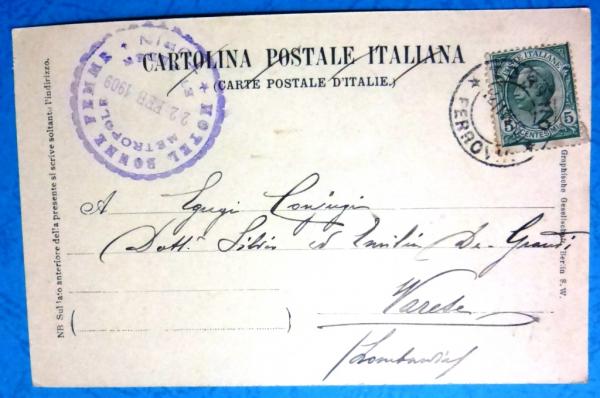 CARTOLINA POSTALE ITALIANA
(CARTE POSTALE D'ITALIE.)
★ HOTEL BONNE FEMME ★
METROPOLE
22 FEB 1909
TURIN
POSTE ITALIANE
5 CENTESIMI 5
FERROVIA
A Egregi Coniugi
Dott. Silvio ed Emilia De-Grandi
Varese
(Lombardia)
NB Sul lato anteriore della presente si scrive soltanto l'indirizzo.
Graphische Gesellschaft, Berlin S. W.